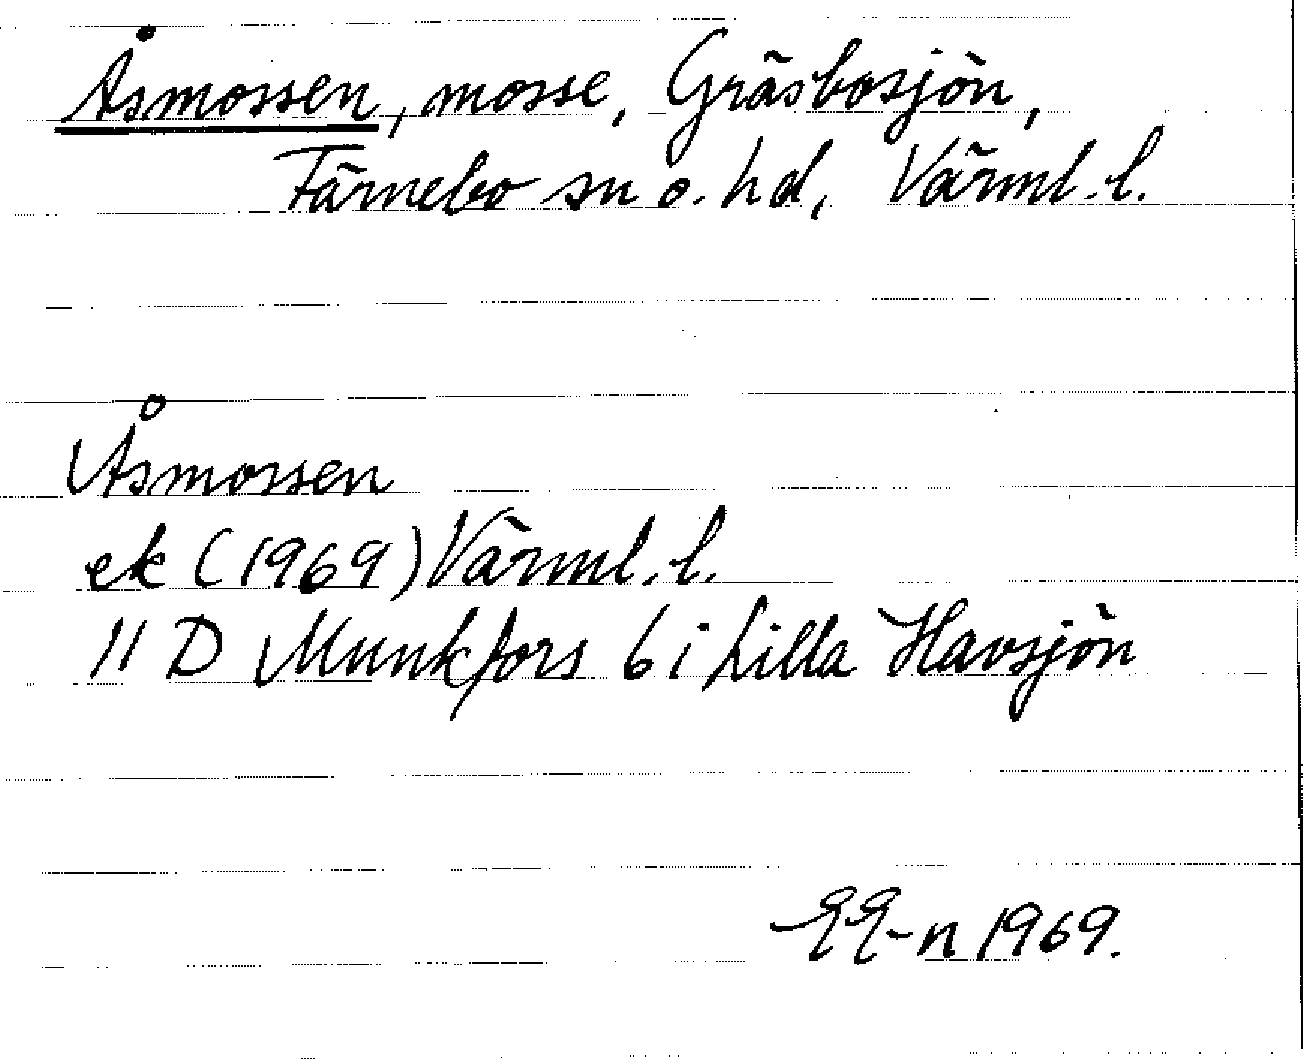 Åsmossen, mosse, Gräsbosjön,
Färnebo sn o. hd, Värml. l.
Åsmossen
ek (1969) Värml. l.
11 D Munkfors 6 i Lilla Havsjön
1969.